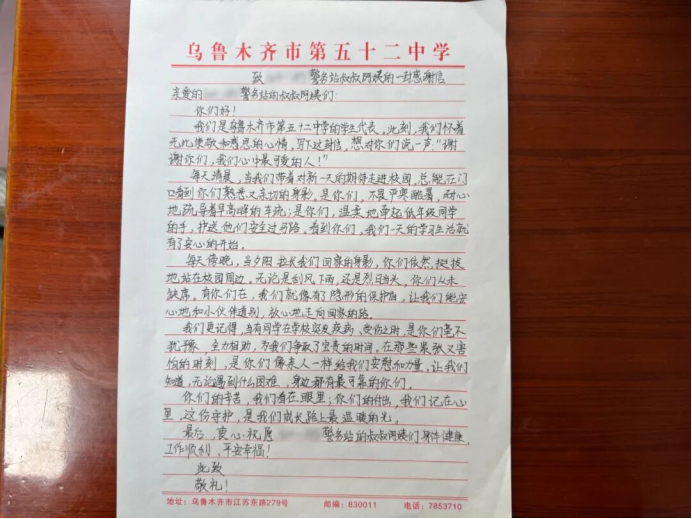 乌鲁木齐市第五十二中学
致 警务站叔叔阿姨的一封感谢信
亲爱的 警务站的叔叔阿姨们:
你们好!
我们是乌鲁木齐市第五十二中学的学生代表,此刻,我们怀着
无比崇敬和感恩的心情,写下这封信,想对你们说一声:“谢
谢你们,我们心中最可爱的人!”
每天清晨,当我们带着对新一天的期待走进校园,总能在门
口看到你们熟悉又亲切的身影,是你们,不畏严寒酷暑,耐心
地疏导着早高峰的车流;是你们,温柔地牵起低年级同学
的手,护送他们安全过马路,看到你们,我们一天的学习生活就
有了安心的开始。
每天傍晚,当夕阳拉长我们回家的身影,你们依然挺拔
地站在校园周边。无论是刮风下雨,还是烈日当头,你们从未
缺席。有你们在,我们就像有了隐形的保护伞,让我们能安
心地和小伙伴道别,放心地走向回家的路。
我们更记得,当有同学在学校突发疾病、受伤之时,是你们毫不
犹豫、全力相助,为我们争取了宝贵的时间。在那些紧张又害
怕的时刻,是你们像家人一样给我们安慰和力量,让我们
知道,无论遇到什么困难,身边都有最可靠的你们。
你们的辛苦,我们看在眼里;你们的付出,我们记在心
里,这份守护,是我们成长路上最温暖的光。
最后,衷心祝愿 警务站的叔叔阿姨们身体健康,
工作顺利,平安幸福!
此致
敬礼!
地址:乌鲁木齐市江苏东路279号 邮编:830011 电话:7853710